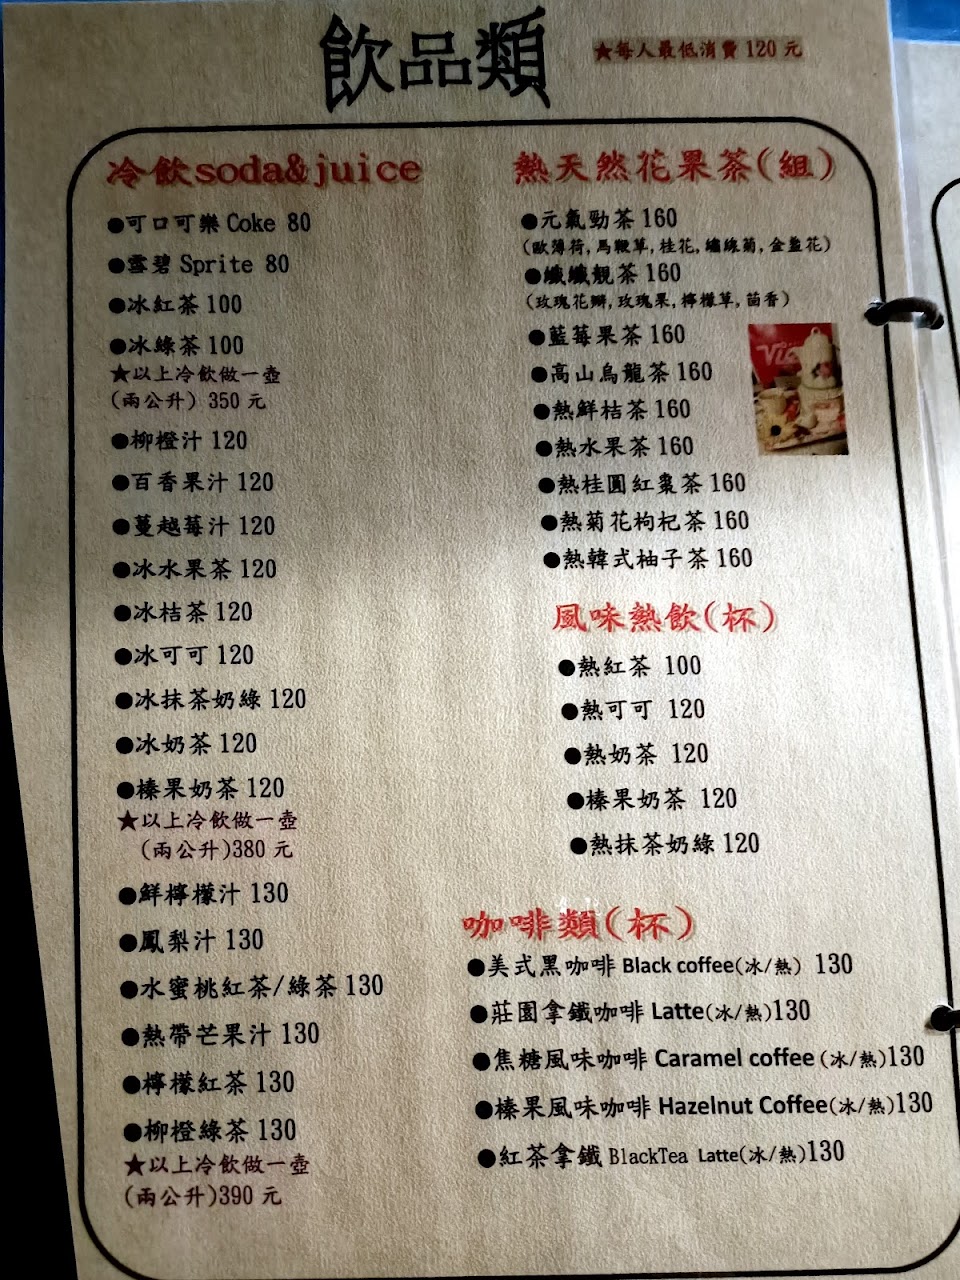 飲品類
★每人最低消費 120 元
冷飲soda&juice
●可口可樂 Coke 80
●雪碧 Sprite 80
●冰紅茶 100
●冰綠茶 100
★以上冷飲做一壺
(兩公升) 350 元
●柳橙汁 120
●百香果汁 120
●蔓越莓汁 120
●冰水果茶 120
●冰桔茶 120
●冰可可 120
●冰抹茶奶綠 120
●冰奶茶 120
●榛果奶茶 120
★以上冷飲做一壺
(兩公升)380 元
●鮮檸檬汁 130
●鳳梨汁 130
●水蜜桃紅茶/綠茶 130
●熱帶芒果汁 130
●檸檬紅茶 130
●柳橙綠茶 130
★以上冷飲做一壺
(兩公升)390 元
熱天然花果茶(組)
●元氣勁茶 160
(歐薄荷,馬鞭草,桂花,繡線菊,金盞花)
●纖纖靚茶 160
(玫瑰花瓣,玫瑰果,檸檬草,茴香)
●藍莓果茶 160
●高山烏龍茶 160
●熱鮮桔茶 160
●熱水果茶 160
●熱桂圓紅棗茶 160
●熱菊花枸杞茶 160
●熱韓式柚子茶 160
風味熱飲(杯)
●熱紅茶 100
●熱可可 120
●熱奶茶 120
●榛果奶茶 120
●熱抹茶奶綠 120
咖啡類(杯)
●美式黑咖啡 Black coffee(冰/熱) 130
●莊園拿鐵咖啡 Latte(冰/熱)130
●焦糖風味咖啡 Caramel coffee (冰/熱)130
●榛果風味咖啡 Hazelnut Coffee(冰/熱)130
●紅茶拿鐵 BlackTea Latte(冰/熱)130